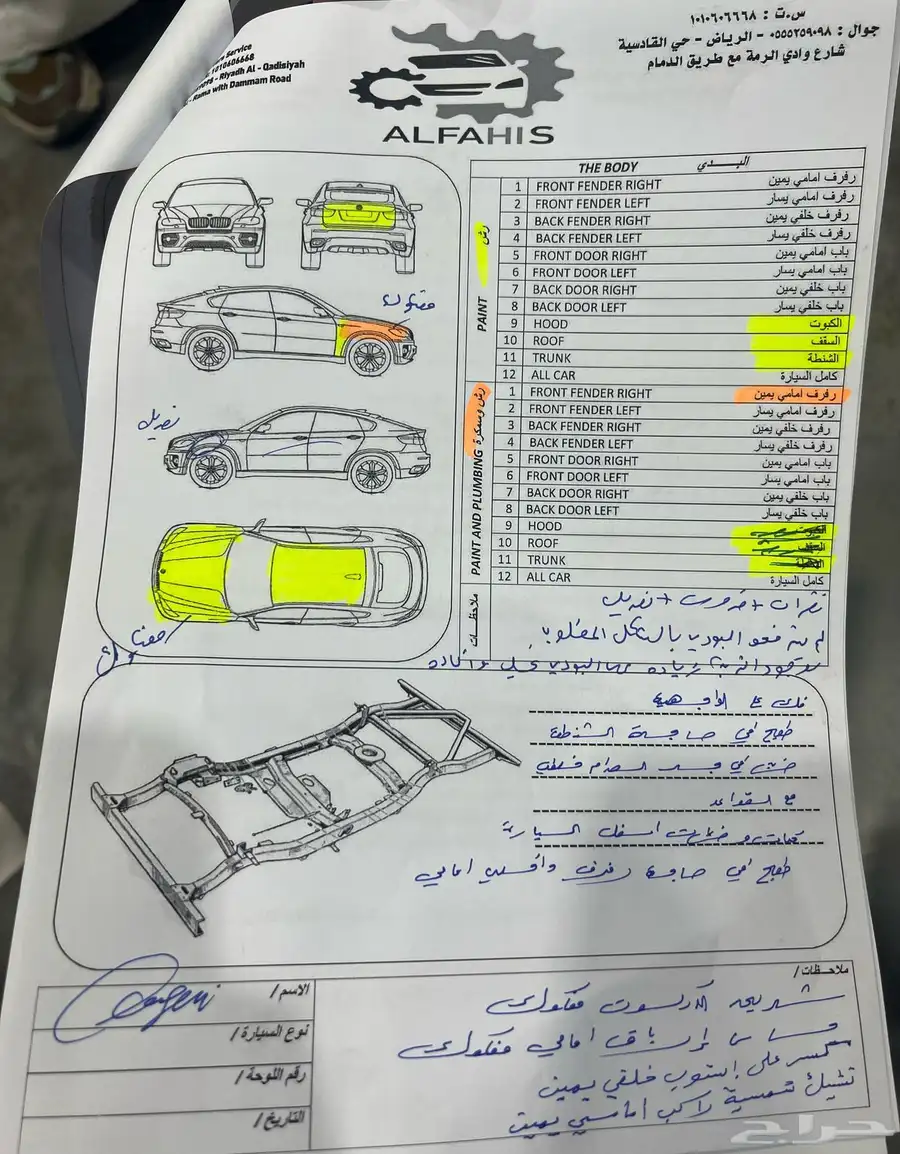 س.ت : ١٠١٠٦٠٦٦٦٨
جوال : ٠٥٥٥٢٥٩٠٩٨ - الرياض - حي القادسية
شارع وادي الرمة مع طريق الدمام
Service
1010606668
- Riyadh Al - Qadisiyah
Rama with Dammam Road
ALFAHIS
THE BODY البــــدي
PAINT رش
1 FRONT FENDER RIGHT رفرف امامي يمين
2 FRONT FENDER LEFT رفرف امامي يسار
3 BACK FENDER RIGHT رفرف خلفي يمين
4 BACK FENDER LEFT رفرف خلفي يسار
5 FRONT DOOR RIGHT باب امامي يمين
6 FRONT DOOR LEFT باب امامي يسار
7 BACK DOOR RIGHT باب خلفي يمين
8 BACK DOOR LEFT باب خلفي يسار
9 HOOD الكبوت
10 ROOF السقف
11 TRUNK الشنطة
12 ALL CAR كامل السيارة
PAINT AND PLUMBING رش وسمكرة
1 FRONT FENDER RIGHT رفرف امامي يمين
2 FRONT FENDER LEFT رفرف امامي يسار
3 BACK FENDER RIGHT رفرف خلفي يمين
4 BACK FENDER LEFT رفرف خلفي يسار
5 FRONT DOOR RIGHT باب امامي يمين
6 FRONT DOOR LEFT باب امامي يسار
7 BACK DOOR RIGHT باب خلفي يمين
8 BACK DOOR LEFT باب خلفي يسار
9 HOOD الكبوت
10 ROOF السقف
11 TRUNK الشنطة
12 ALL CAR كامل السيارة
مفكوك
تعديل
مفكوك
ملاحظــات
+ تعديل
لم يتم فحص البودي بالشكل المطلوب
فك على الواجهة
طعج في صاجة الشنطة
في جسر الصدام
مع القواعد
اسفل السيارة
طعج في صاجة رفرف داخلي امامي
ملاحظات/
شريحة مفكوك
امامي مفكوك
كسر على إسطب خلفي يمين
شمسية راكب امامي يمين
الاسم/
نوع السيارة/
رقم اللوحة/
التاريخ/
حراج